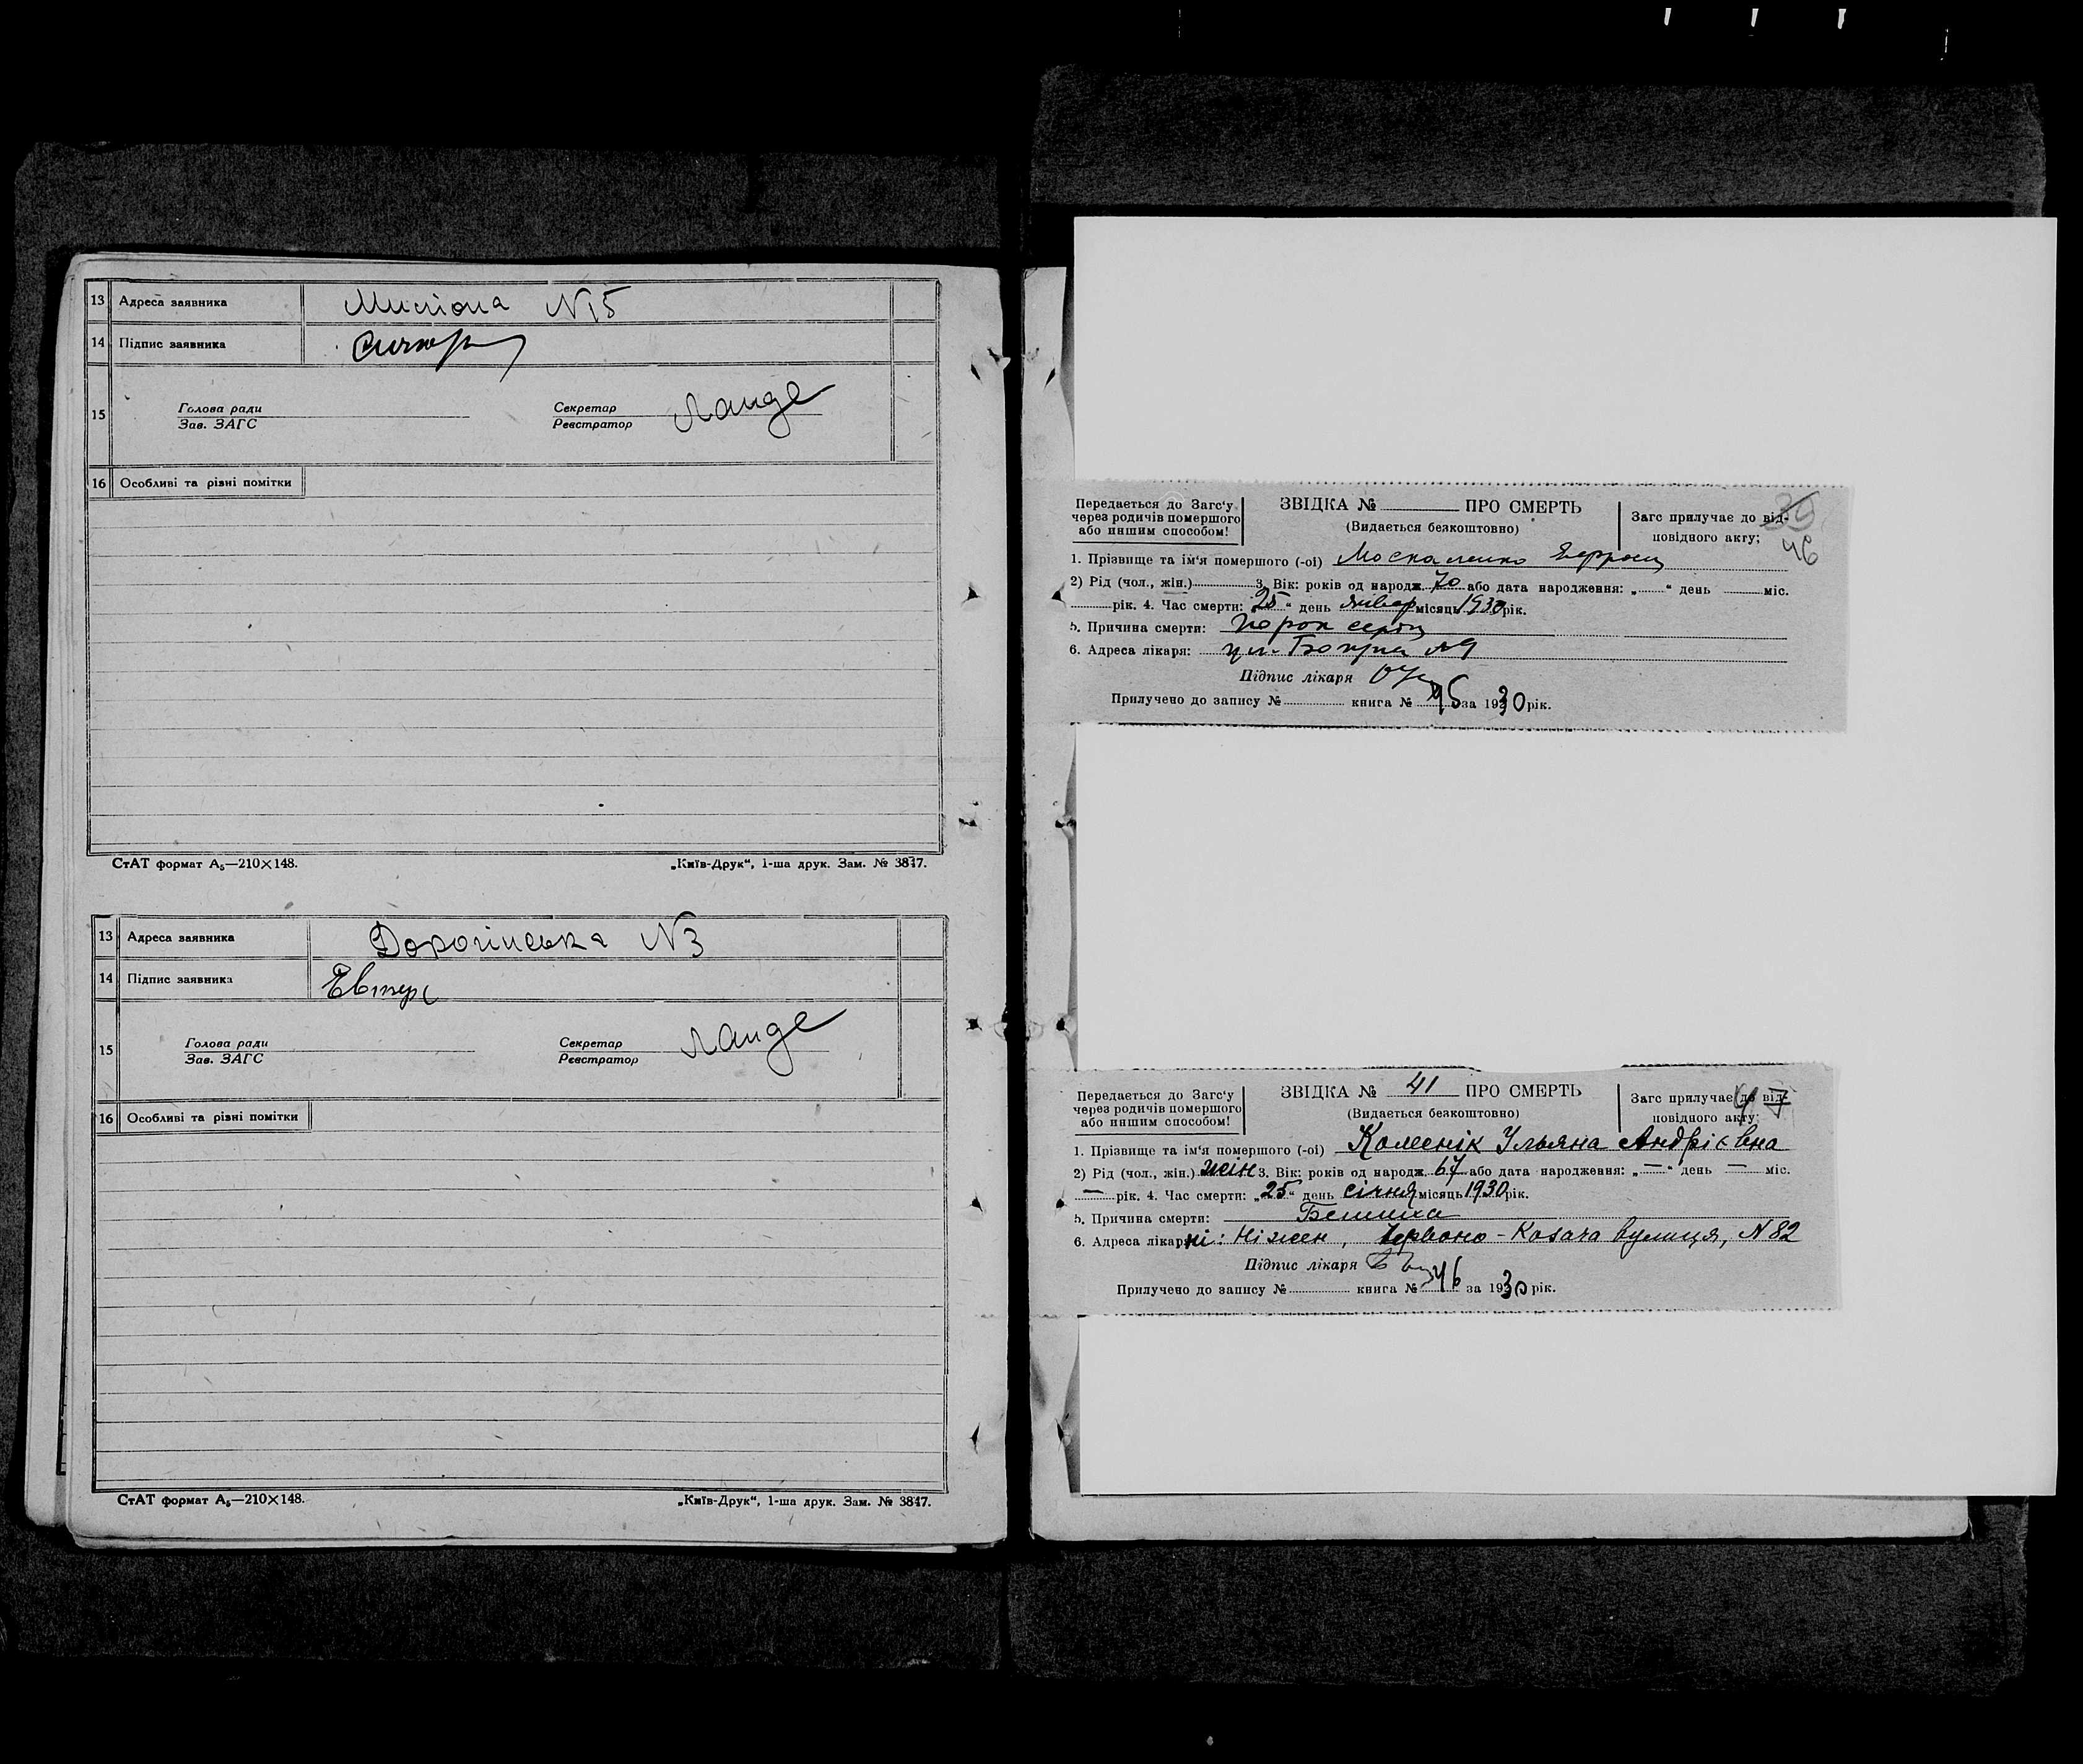 13 Адреса заявника Миліона N 15
14 Підпис заявника
15 Голова ради Секретар Ланде
Зав. ЗАГС Реєстратор
16 Особливі та різні помітки
СтАТ формат А₅—210×148. „Київ-Друк“, 1-ша друк. Зам. № 3847.
13 Адреса заявника Дорогінська N 3
14 Підпис заявника
15 Голова ради Секретар Ланде
Зав. ЗАГС Реєстратор
16 Особливі та різні помітки
СтАТ формат А₅—210×148. „Київ-Друк“, 1-ша друк. Зам. № 3847.
Передається до Загс'у
через родичів помершого
або иншим способом!
ЗВІДКА № ПРО СМЕРТЬ
(Видається безкоштовно)
Загс прилучає до від-
повідного акту; 46
1. Прізвище та ім'я помершого (-ої) Москаленко
2) Рід (чол., жін.) 3. Вік: років од народж. 70 або дата народження: „ “ день міс.
рік. 4. Час смерти: „25“ день январ місяць 1930 рік.
5. Причина смерти: порок сердц
6. Адреса лікаря: ул.
Підпис лікаря
Прилучено до запису № книга № 45 за 1930 рік.
Передається до Загс'у
через родичів помершого
або иншим способом!
ЗВІДКА № 41 ПРО СМЕРТЬ
(Видається безкоштовно)
Загс прилучає до від-
повідного акту;
1. Прізвище та ім'я помершого (-ої) Коменік Ульяна Андрієвна
2) Рід (чол., жін.) жін 3. Вік: років од народж. 67 або дата народження: „—“ день — міс.
— рік. 4. Час смерти: „25“ день січня місяць 1930 рік.
5. Причина смерти: Бешиха
6. Адреса лікарні: Ніжен, Червоно-Козача вулиця, N 82
Підпис лікаря
Прилучено до запису № книга № 46 за 1930 рік.